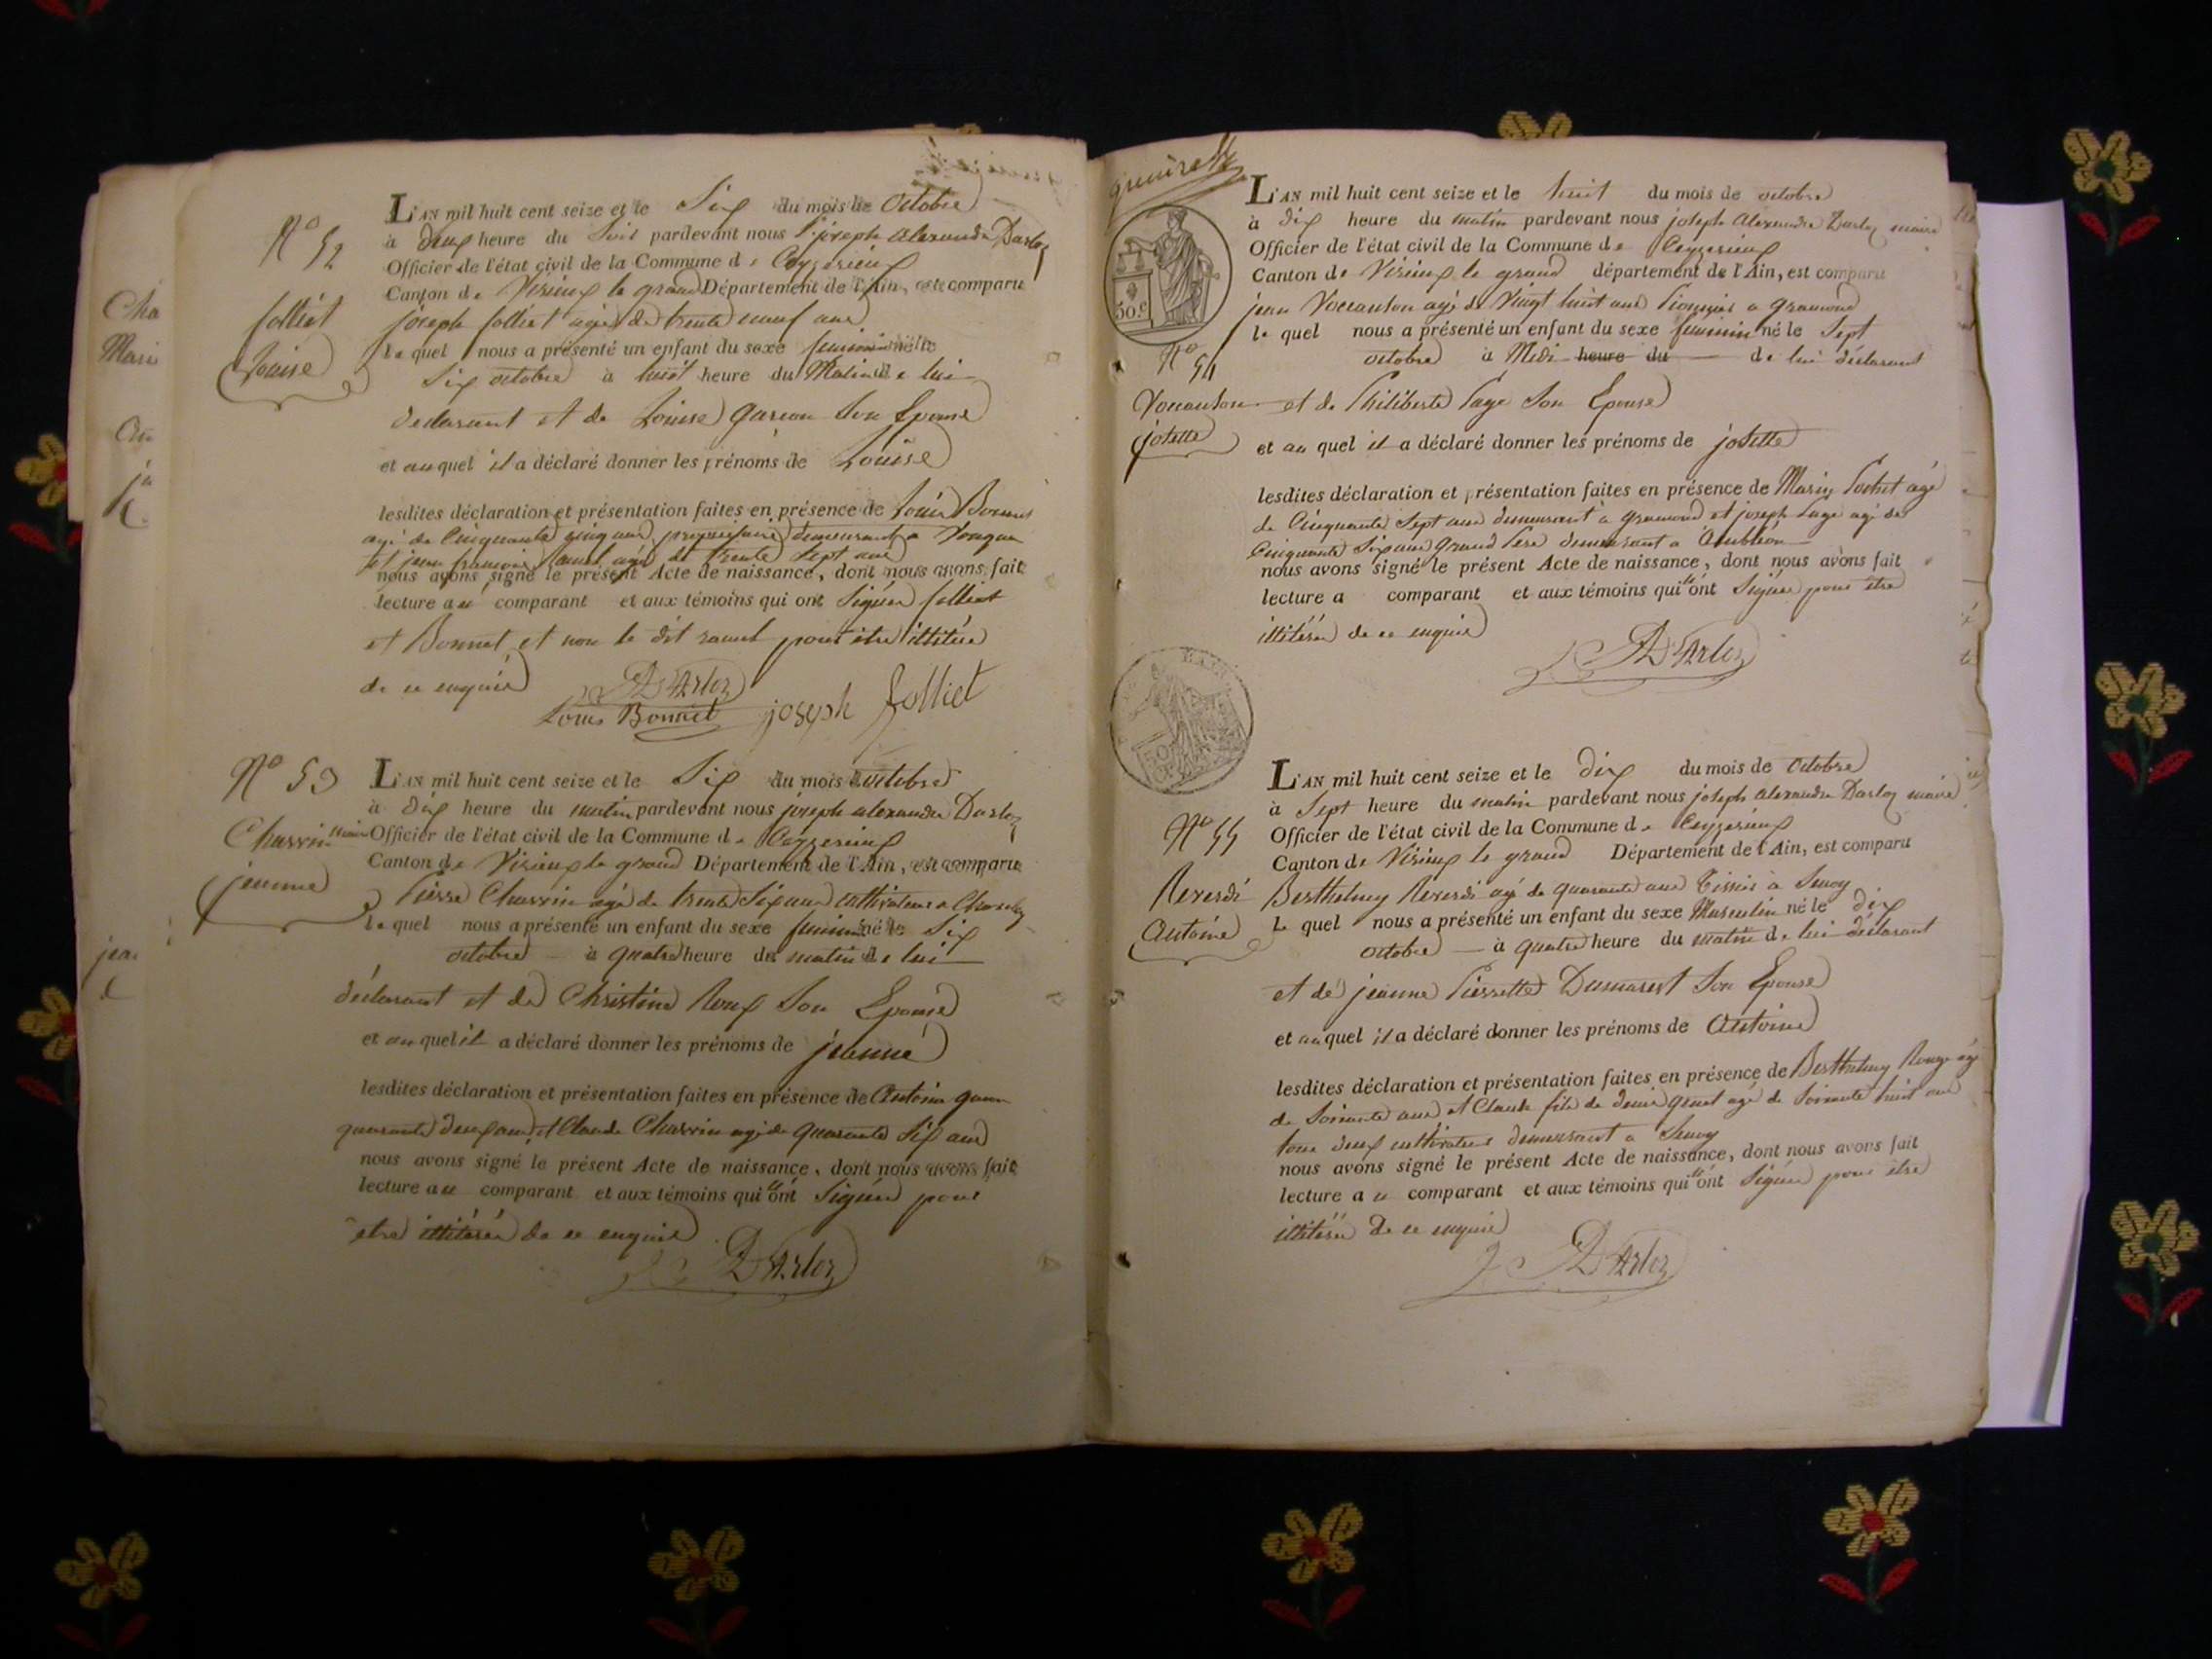 Cha
Mari
jea
N° 52
folliet
Louise
L'AN mil huit cent seize et le Six du mois de octobre
à deux heure du Soir pardevant nous joseph alexandre Darloz
Officier de l'état civil de la Commune de Ceyzerieux
Canton de Virieux le grand Département de l'Ain, est comparu
joseph folliet agé de trente neuf ans
le quel nous a présenté un enfant du sexe feminin né le
Six octobre à huit heure du Matin de lui
declarant et de Louise Garcon Son Epouse
et au quel il a déclaré donner les prénoms de Louise
lesdites déclaration et présentation faites en présence de Louis Bonnet
agé de Cinquante cinq ans propriétaire demeurant a
et jean francois agé de trente Sept ans
nous avons signé le présent Acte de naissance, dont nous avons fait
lecture au comparant et aux témoins qui ont Signés folliet
et Bonnet et non le dit pour être illitéré
de ce enquis
DArloz
Louis Bonnet joseph folliet
N° 53
Charvin
jeanne
L'AN mil huit cent seize et le Six du mois d'octobre
à dix heure du matin pardevant nous joseph alexandre Darloz
maire Officier de l'état civil de la Commune de Ceyzerieux
Canton de Virieux le grand Département de l'Ain, est comparu
Pierre Charvin agé de trente Six ans cultivateur a
le quel nous a présenté un enfant du sexe feminin né le Six
octobre à quatre heure du matin de lui
déclarant et de Christine Roux Son Epouse
et au quel il a déclaré donner les prénoms de jeanne
lesdites déclaration et présentation faites en présence de Antoine
quarante deux ans et Claude Charvin agé de quarante Six ans
nous avons signé le présent Acte de naissance, dont nous avons fait
lecture au comparant et aux témoins qui n'ont Signés pour
etre illitérés de ce enquis
DArloz
50.c
N° 54
Vocanson
josette
L'AN mil huit cent seize et le huit du mois de octobre
à dix heure du matin pardevant nous joseph alexandre Darloz maire
Officier de l'état civil de la Commune de Ceyzerieux
Canton de Virieux le grand département de l'Ain, est comparu
jean Vocanson agé de Vingt huit ans
le quel nous a présenté un enfant du sexe feminin né le Sept
octobre à Midi heure du de lui déclarant
et de Philiberte Page Son Epouse
et au quel il a déclaré donner les prénoms de josette
lesdites déclaration et présentation faites en présence de Marin Pochet agé
de Cinquante Sept ans demeurant a gramond et joseph Page agé de
Cinquante Six ans grand Pere demeurant a
nous avons signé le présent Acte de naissance, dont nous avons fait
lecture a comparant et aux témoins qui n'ont Signés pour etre
illitérés de ce enquis
DArloz
N° 55
Reverdi
Antoine
L'AN mil huit cent seize et le dix du mois de octobre
à Sept heure du matin pardevant nous joseph alexandre Darloz maire
Officier de l'état civil de la Commune de Ceyzerieux
Canton de Virieux le grand Département de l'Ain, est comparu
Berthelmy Reverdi agé de quarante ans Tissier à
le quel nous a présenté un enfant du sexe Masculin né le dix
octobre à quatre heure du matin de lui déclarant
et de jeanne Pierrette Dumarest Son Epouse
et au quel il a déclaré donner les prénoms de Antoine
lesdites déclaration et présentation faites en présence de Berthelmy agé
de Soixante ans et Claude fils de agé de Soixante huit ans
tous deux cultivateurs demeurant a
nous avons signé le présent Acte de naissance, dont nous avons fait
lecture au comparant et aux témoins qui n'ont Signés pour etre
illitérés de ce enquis
DArloz